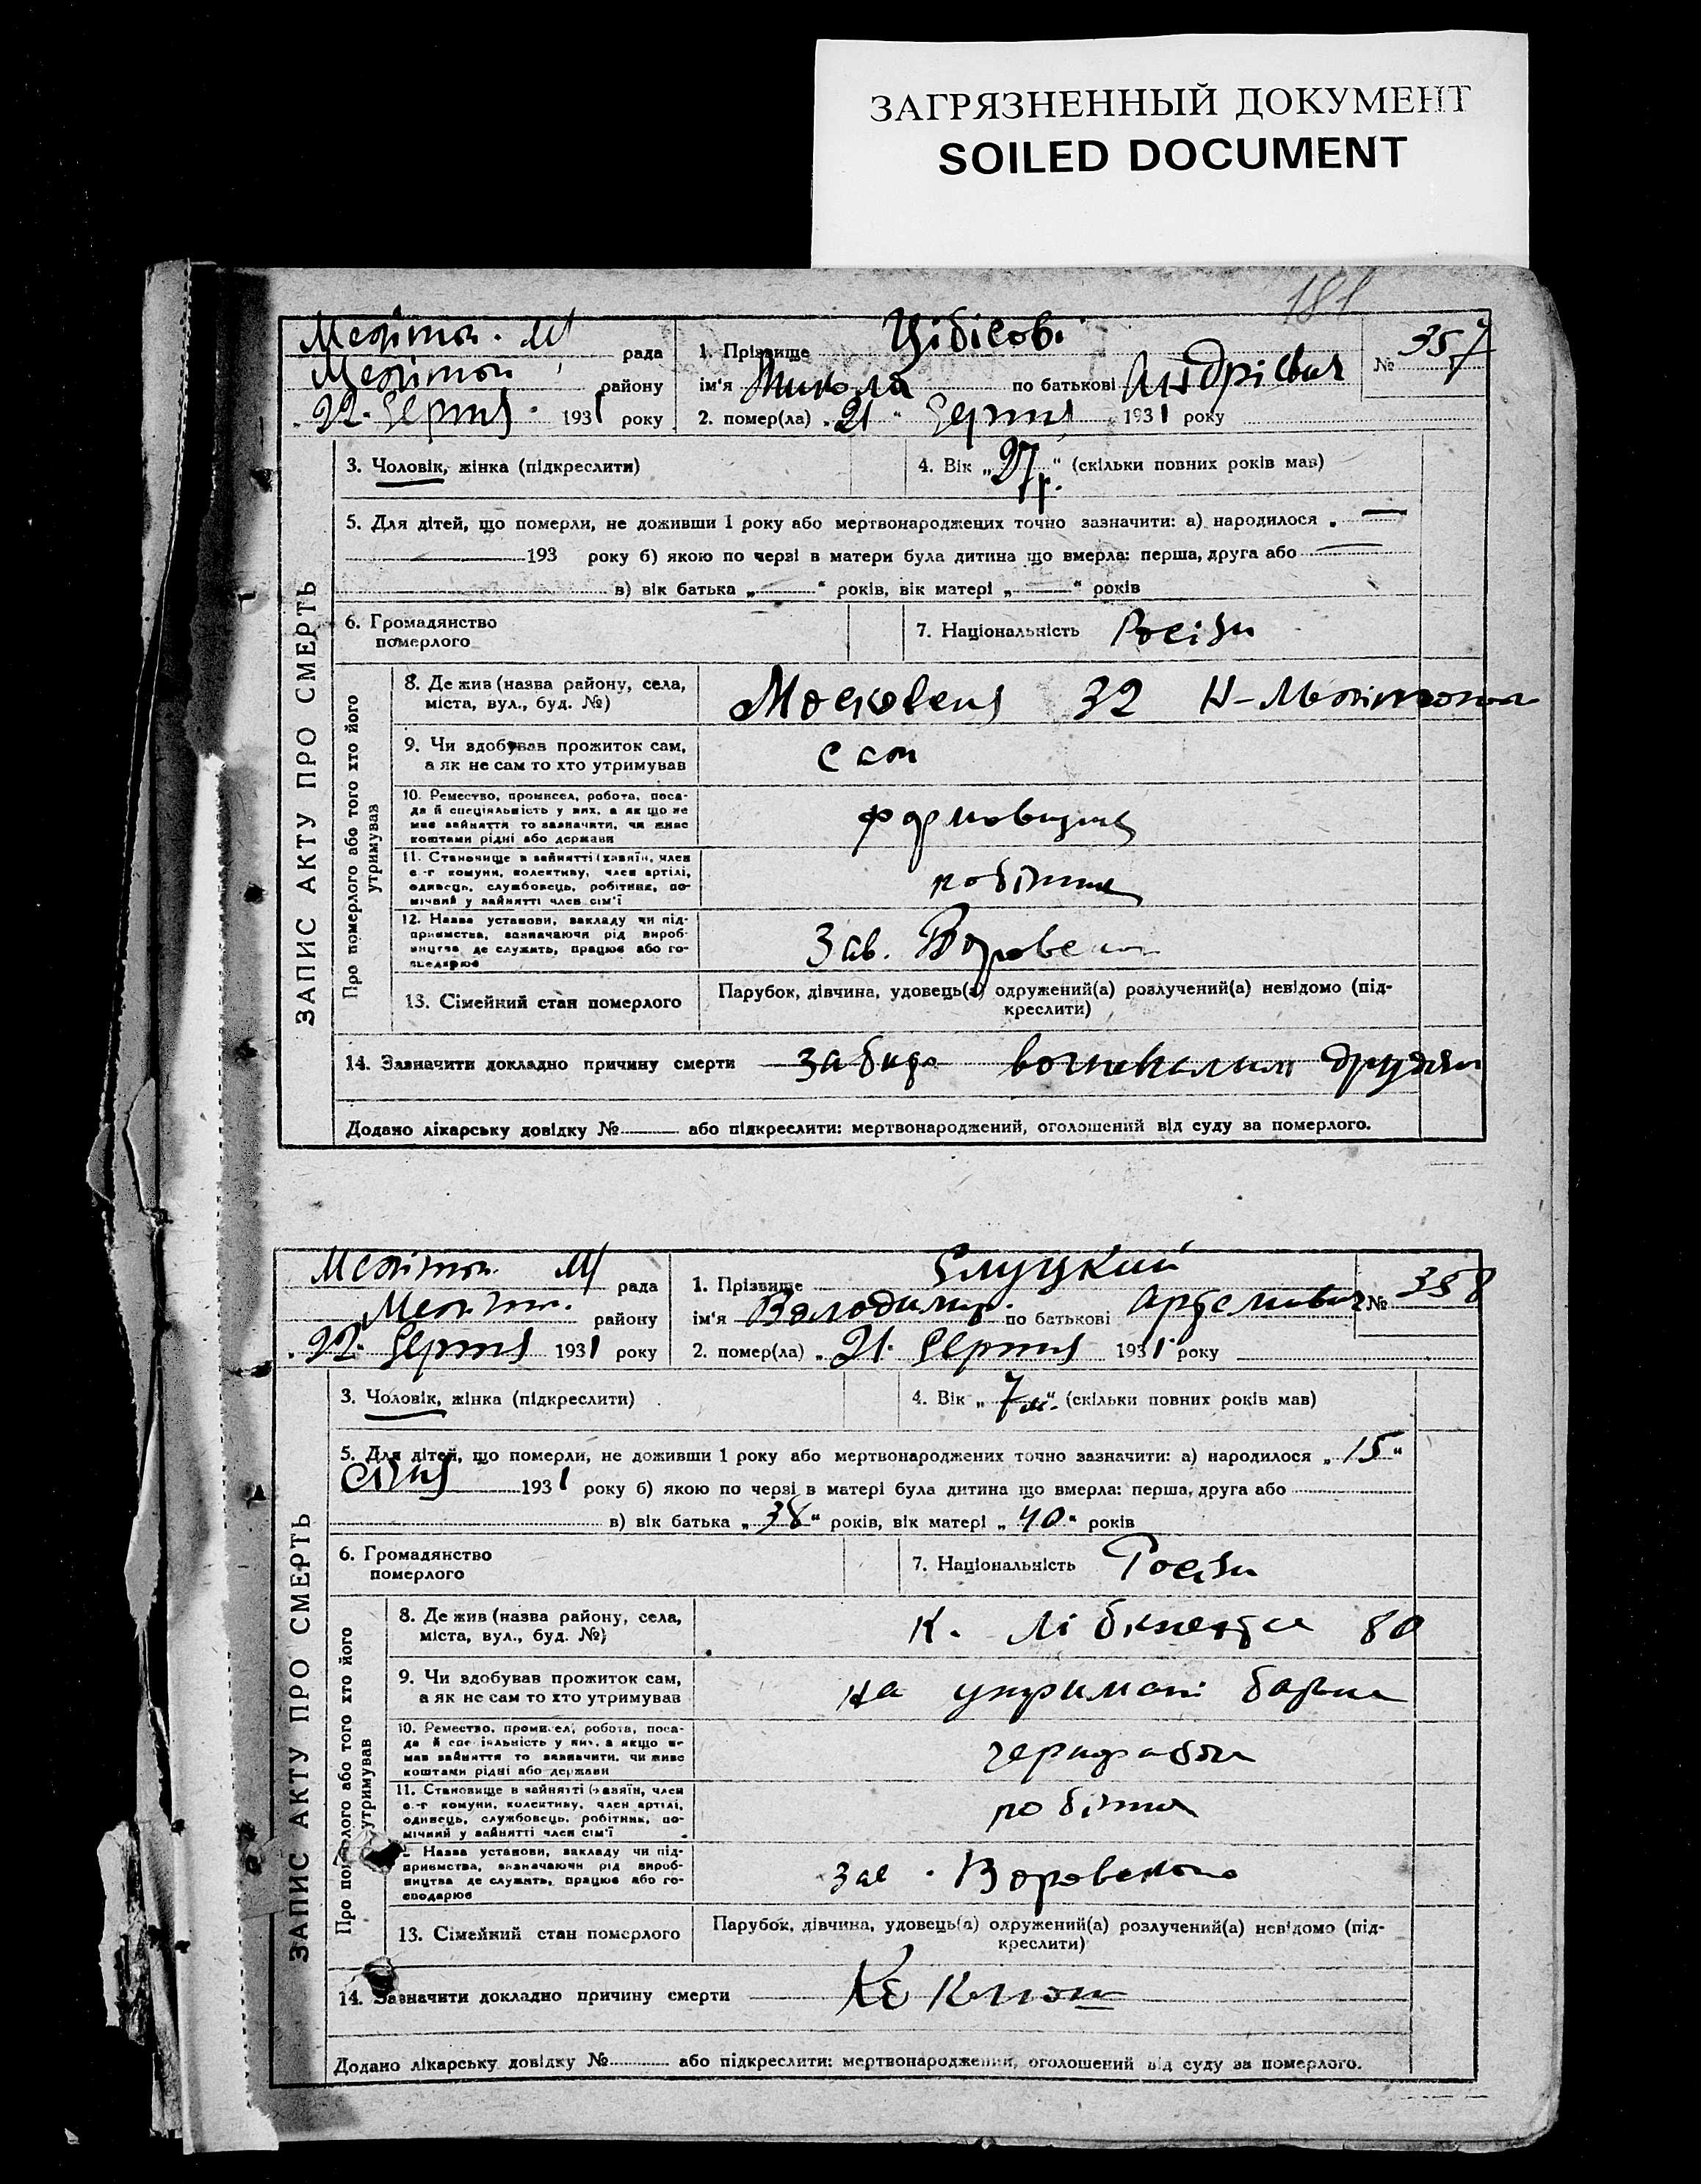 ЗАГРЯЗНЕННЫЙ ДОКУМЕНТ
SOILED DOCUMENT
181
Меліт. М рада
1. Прізвище
№ 357
Меліт району
ім'я Микола по батькові Андрієвич
„22" Серпня 1931 року
2. помер(ла) „21" Серпня 1931 року
ЗАПИС АКТУ ПРО СМЕРТЬ
3. Чоловік, жінка (підкреслити)
4. Вік „27 р." (скільки повних років мав)
5. Для дітей, що померли, не доживши 1 року або мертвонароджених точно зазначити: а) народилося „ —
193 року б) якою по черзі в матери була дитина що вмерла: перша, друга або —
в) вік батька „ — " років, вік матері „ — " років
6. Громадянство
померлого
7. Національність Росіян
Про померлого або того хто його
утримував
8. Де жив (назва району, села,
міста, вул., буд. №)
Московська 32 Н-Мелітополь
9. Чи здобував прожиток сам,
а як не сам то хто утримував
сам
10. Ремество, промисел, робота, поса-
да й спеціяльність у них, а як що не
мав зайняття то зазначити, чи живе
коштами рідні або держави
формовщик
11. Становище в зайнятті (хазяїн, член
с.-г комуни, колективу, член артілі,
одинець, службовець, робітник, по-
мічний у зайнятті член сім'ї
робітник
12. Назва установи, закладу чи під-
приємства, зазначаючи рід вироб-
ництва де служить, працює або го-
сподарює
Зав. Воровського
13. Сімейний стан померлого
Парубок, дівчина, удовець(а) одружений(а) розлучений(а) невідомо (під-
креслити)
14. Зазначити докладно причину смерти
Додано лікарську довідку № або підкреслити: мертвонароджений, оголошений від суду за померлого.
Меліт. М рада
1. Прізвище Слуцкий
№ 358
Меліт. району
ім'я Володимир по батькові Артемович
„22" Серпня 1931 року
2. помер(ла) „21" Серпня 1931 року
ЗАПИС АКТУ ПРО СМЕРТЬ
3. Чоловік, жінка (підкреслити)
4. Вік „7 м." (скільки повних років мав)
5. Для дітей, що померли, не доживши 1 року або мертвонароджених точно зазначити: а) народилося „15"
січня 1931 року б) якою по черзі в матері була дитина що вмерла: перша, друга або
в) вік батька „38" років, вік матері „40" років
6. Громадянство
померлого
7. Національність Росіян
Про померлого або того хто його
утримував
8. Де жив (назва району, села,
міста, вул., буд. №)
К. Лібкнехта 80
9. Чи здобував прожиток сам,
а як не сам то хто утримував
на утримані батька
10. Ремество, промисел, робота, поса-
да й спеціяльність у них, а якщо не
мав зайняття то зазначити, чи живе
коштами рідні або держави
чорнороб
11. Становище в зайнятті (хазяїн, член
с.-г комуни, колективу, член артілі,
одинець, службовець, робітник, по-
мічний у зайнятті член сім'ї
робітник
Назва установи, закладу чи під-
приємства, зазначаючи рід вироб-
ництва де служить, працює або го-
сподарює
зав. Воровського
13. Сімейний стан померлого
Парубок, дівчина, удовець(а) одружений(а) розлучений(а) невідомо (під-
креслити)
14. Зазначити докладно причину смерти
Додано лікарську довідку № або підкреслити: мертвонароджений, оголошений від суду за померлого.